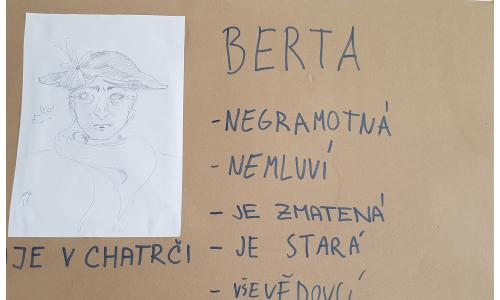 BERTA
-NEGRAMOTNÁ
- NEMLUVÍ
- JE ZMATENÁ
- JE STARÁ
- VŠEVĚDOUCÍ
JE V CHATRČI